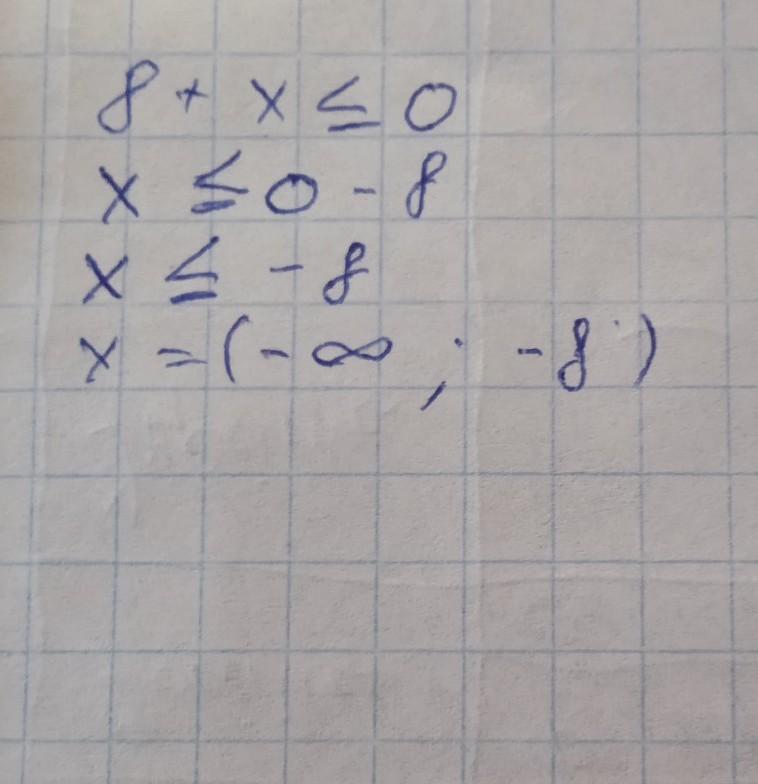 8 + x ≤ 0
x ≤ 0 - 8
x ≤ - 8
x = (- ∞ ; - 8)